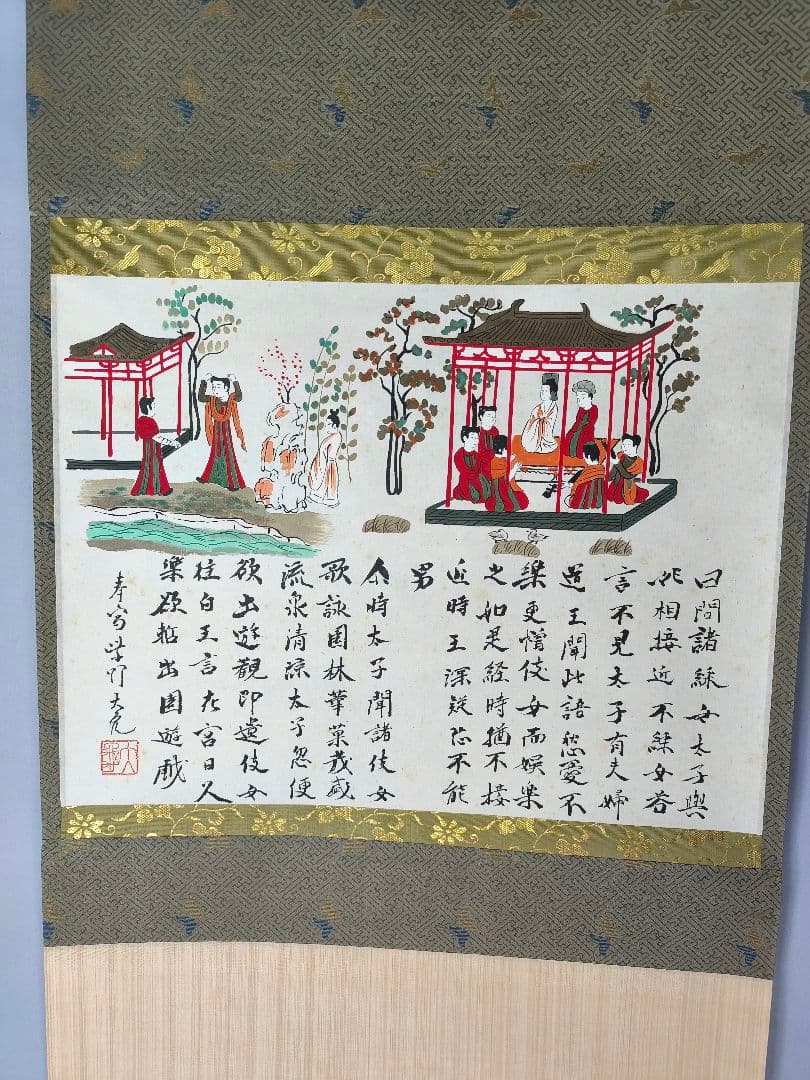 曰問諸綵女太子與
妃相接近不綵女答
言不見太子有夫婦
道王聞此語愁憂不
樂更增伎女而娛樂
之如是経時猶不接
近時王深疑恐不能
男
尒時太子聞諸伎女
歌詠園林華菓茂盛
流泉清凉太子忽便
欲出遊觀即遣伎女
往白王言在宮日久
樂欲暫出園遊戲